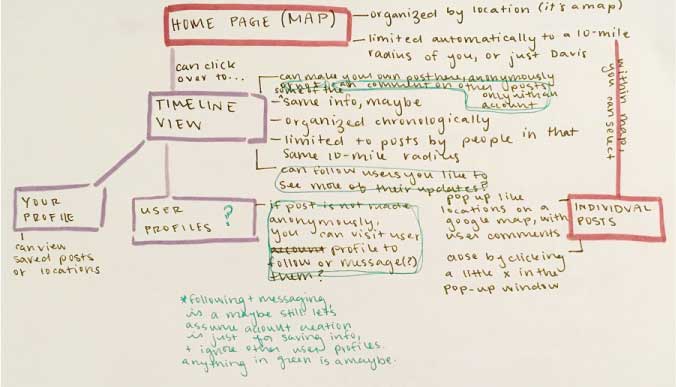 HOME PAGE (MAP)
- organized by location (it's a map)
- limited automatically to a 10-mile
radius of you, or just Davis
can click
over to...
within map,
you can select
TIMELINE
VIEW
- can make your own post here, anonymously
or not (can comment on other posts
only with an
account
some of the
- same info, maybe
- organized chronologically
- limited to posts by people in that
same 10-mile radius
can follow users you like to
see more of their updates?
YOUR
PROFILE
can view
saved posts
or locations
USER
PROFILES ?
- if post is not made
anonymously,
you can visit user
account profile to
follow or message(?)
them?
pop up like
locations on a
google map, with
user comments
INDIVIDUAL
POSTS
close by clicking
a little x in the
pop-up window
*following + messaging
is a maybe still let's
assume account creation
is just for saving info,
+ ignore other user profiles.
anything in green is a maybe.